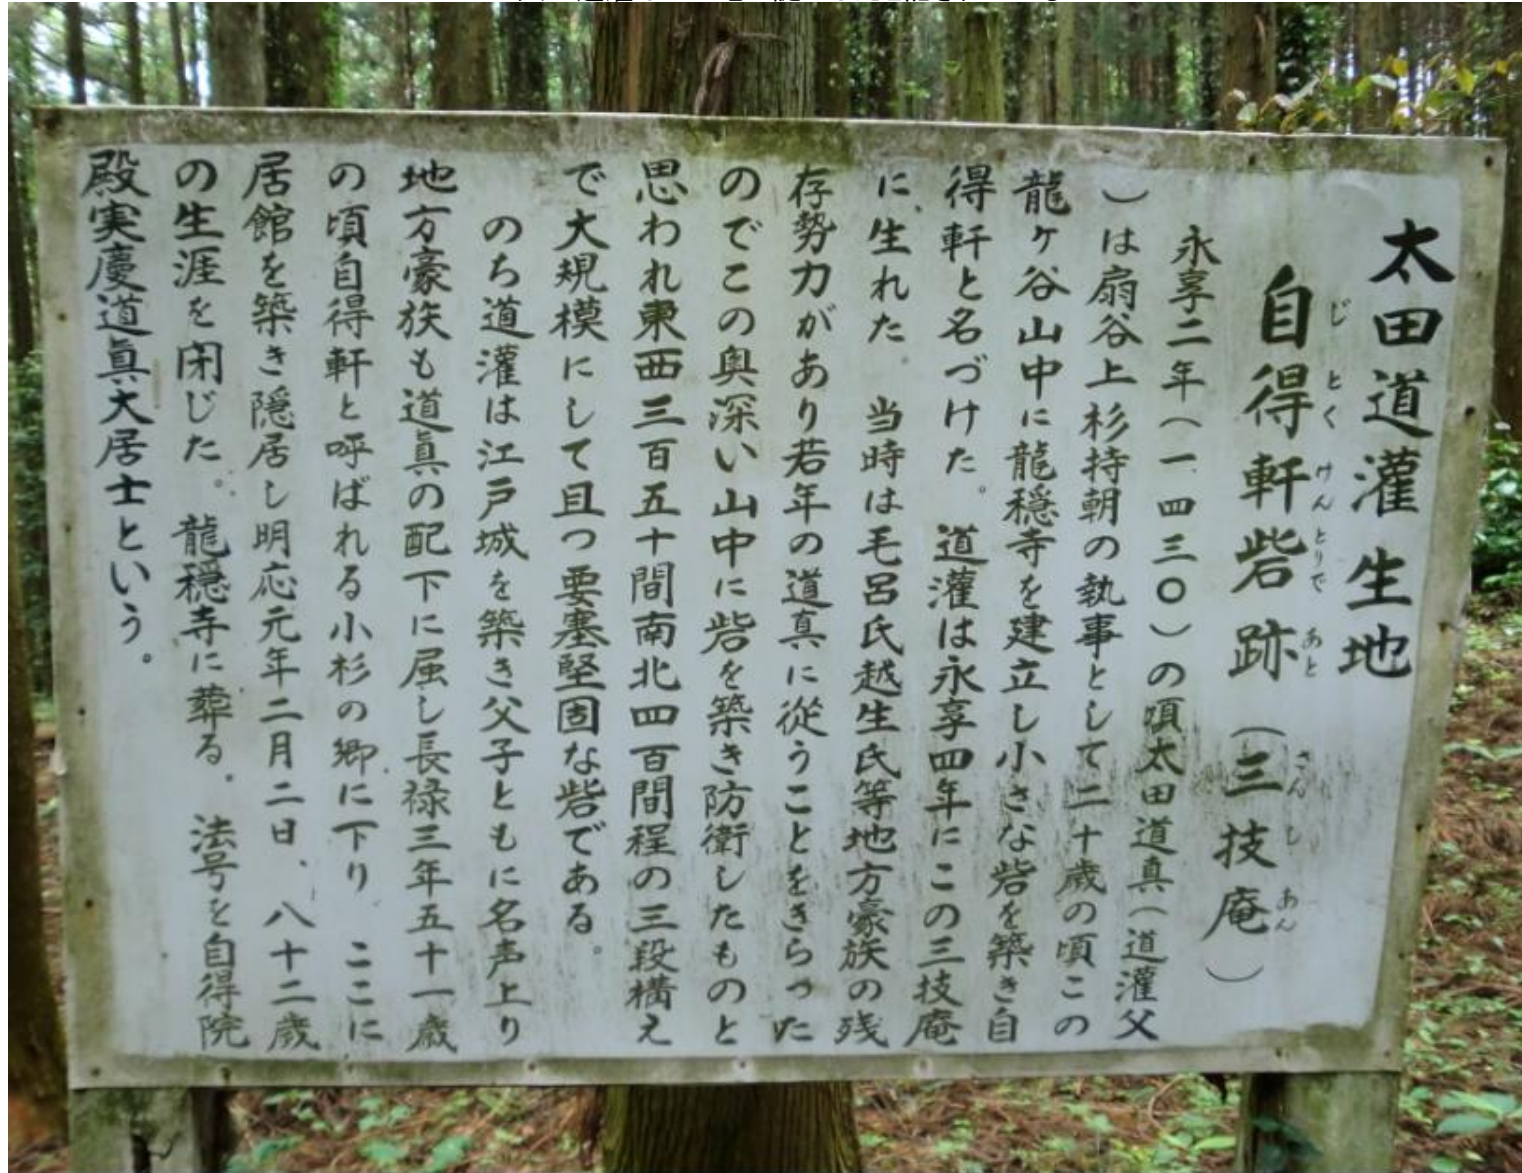 太田道灌生地
自得軒砦跡（三技庵）
じとくけんとりであと さんしあん
永享二年（一四三〇）の頃太田道真（道灌父
）は扇谷上杉持朝の執事として二十歳の頃この
龍ヶ谷山中に龍穏寺を建立し小さな砦を築き自
得軒と名づけた。道灌は永享四年にこの三技庵
に生れた。当時は毛呂氏越生氏等地方豪族の残
存勢力があり若年の道真に従うことをきらった
のでこの奥深い山中に砦を築き防衛したものと
思われ東西三百五十間南北四百間程の三段構え
で大規模にして且つ要塞堅固な砦である。
のち道灌は江戸城を築き父子ともに名声上り
地方豪族も道眞の配下に屈し長禄三年五十一歳
の頃自得軒と呼ばれる小杉の郷に下り ここに
居館を築き隠居し明応元年二月二日、八十二歳
の生涯を閉じた。龍穏寺に葬る。法号を自得院
殿実慶道眞大居士という。